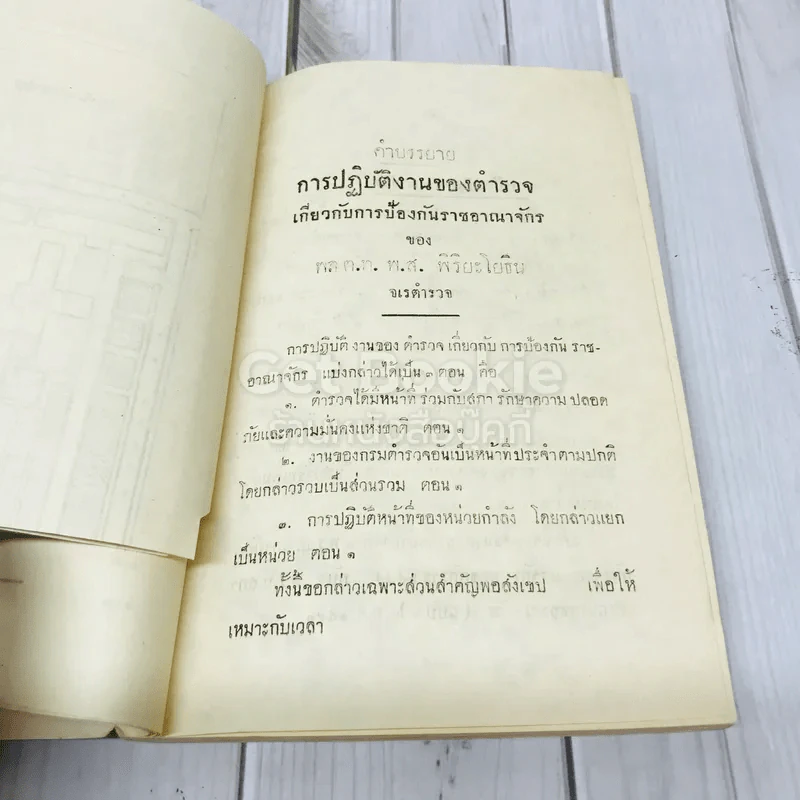 คำบรรยาย
การปฏิบัติงานของตำรวจ
เกี่ยวกับการป้องกันราชอาณาจักร
ของ
พล ต.ท. พ.ส. พิริยะโยธิน
จเรตำรวจ
การปฏิบัติ งานของ ตำรวจ เกี่ยวกับ การป้องกัน ราช-
อาณาจักร แบ่งกล่าวได้เป็น ๓ ตอน คือ
๑. ตำรวจได้มีหน้าที่ ร่วมกับสภา รักษาความ ปลอด
ภัยและความมั่นคงแห่งชาติ ตอน ๑
๒. งานของกรมตำรวจอันเป็นหน้าที่ประจำตามปกติ
โดยกล่าวรวบเป็นส่วนรวม ตอน ๑
๓. การปฏิบัติหน้าที่ของหน่วยกำลัง โดยกล่าวแยก
เป็นหน่วย ตอน ๑
ทั้งนี้ขอกล่าวเฉพาะส่วนสำคัญพอสังเขป เพื่อให้
เหมาะกับเวลา
Get Bookie
ร้านหนังสือบุ๊คกี้